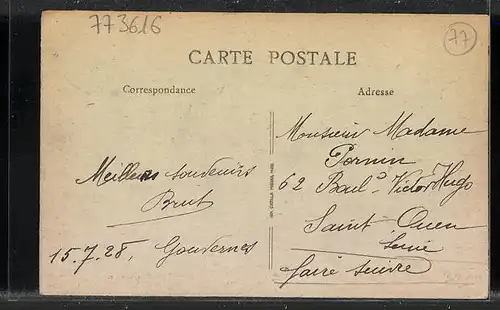 773616
77
CARTE POSTALE
Correspondance
Adresse
Monsieur Madame
Pernin
62 Boul.d Victor Hugo
Saint-Ouen
Seine
faire suivre
Meilleurs souvenirs
Brut
15.7.28, Gouvernes